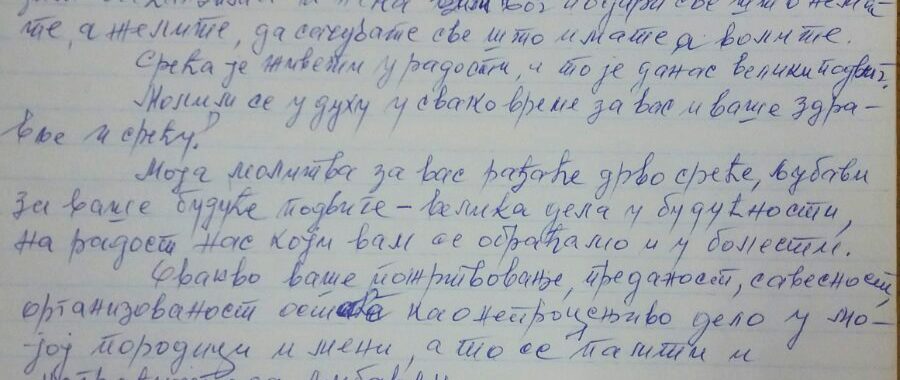 и нека вам Бог подари све што нема-
те, а желите, да сачувате све што имате а волите.
Срећа је живети у радости, и то је данас велики подвиг.
Молим се у духу у свако време за вас и ваше здра-
вље и срећу!
Моја молитва за вас рађаће дрво среће, љубави
за ваше будуће подвиге – велика дела у будућности,
на радост нас који вам се обраћамо и у болести.
Овакво ваше пожртвовање, преданост, савесност,
организованост остаће као непроцењиво дело у мо-
-јој породици и мени, а то се памти и